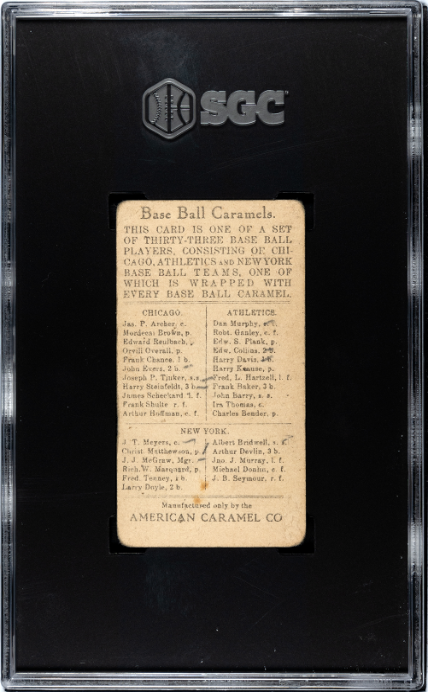 SGC
Base Ball Caramels.
THIS CARD IS ONE OF A SET
OF THIRTY-THREE BASE BALL
PLAYERS, CONSISTING OF CHI-
CAGO, ATHLETICS AND NEW YORK
BASE BALL TEAMS, ONE OF
WHICH IS WRAPPED WITH
EVERY BASE BALL CARAMEL.
CHICAGO.
Jas. P. Archer, c.
Mordecai Brown, p.
Edward Reulbach,
Orvill Overall, p.
Frank Chance, 1 b
John Evers, 2 b
Joseph P. Tinker, s.s.
Harry Steinfeldt, 3 b
James Scheckard l. f.
Frank Shulte r. f.
Arthur Hoffman, c. f.
ATHLETICS.
Dan Murphy,
Robt. Ganley, c. f.
Edw. S. Plank, p.
Edw. Collins,
Harry Davis,
Harry Krause, p.
Fred. L. Hartzell, l. f.
Frank Baker, 3 b.
John Barry, s. s.
Ira Thomas, c.
Charles Bender, p.
NEW YORK.
J. T. Meyers, c.
Christ Matthewson, p.
J. J. McGraw, Mgr.
Rich. W. Marquard, p.
Fred. Tenney, 1 b
Larry Doyle, 2 b.
Albert Bridwell, s. s.
Arthur Devlin, 3 b.
Jno. J. Murray, l. f.
Michael Donlin, c. f.
J. B. Seymour, r. f.
Manufactured only by the
AMERICAN CARAMEL CO